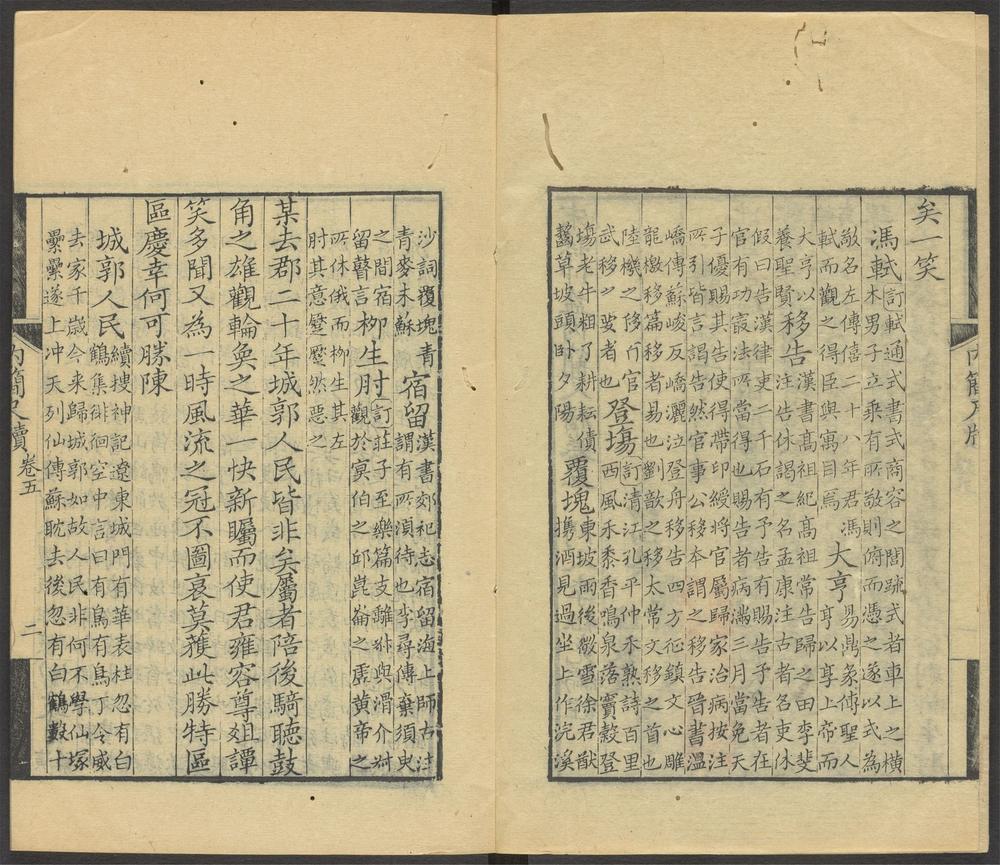 矣一笑
馮軾
訂軾通式書式商容之閭䟽式者車上之橫
木男子立乘有所敬則俯而憑之遂以式為
敬名左傳僖二十八年君馮
軾而觀之得臣與寓目焉
大亨
易鼎彖傳聖人
亨以享上帝而
大亨以
養聖賢
移告
漢書高祖紀高祖常告歸之田李斐
注告休謁之名孟康注古者名吏休
假曰告漢律吏二千石有予告有賜告予告者在
官有功㝡法所當得也賜告者病滿三月當免天
子優賜其告使得帶印綬將官屬歸家治病按注
所引皆言謁告然官事公移本謂之移告晉書溫
嶠傳蘇峻反嶠灑泣登舟移告四方征鎮文心雕
龍檄移篇移者易也劉歆之移太常文移之首也
陸機之移百官
武移之要者也
登場
訂清江孔平仲禾熟詩百里
西風禾黍香鳴泉落竇穀登
塲老牛粗了耕耘債
覆塊
東坡雨後微雪徐君猷
攜酒見過坐上作浣溪
齧草坡頭卧夕陽
沙詞覆塊青
青麥未蘇
宿留
漢書郊祀志宿留海上師古注
謂有所須待也李尋傳棄須臾
之間宿
留瞽言
柳生肘
訂莊子至樂篇支離叔與滑介叔
觀於冥伯之邱崑崙之虛黃帝之
所休俄而柳生其左
肘其意蹷蹷然惡之
某去郡二十年城郭人民皆非矣屬者陪後騎聽鼓
角之雄觀輪奐之華一快新矚而使君雍容尊俎譚
笑多聞又為一時風流之冠不圖衰莫獲此勝特區
區慶幸何可勝陳
城郭人民
續搜神記遼東城門有華表柱忽有白
鶴集徘徊空中言曰有鳥有鳥丁令威
去家千歲今来歸城郭如故人民非何不學仙塚
纍纍遂上冲天列仙傳蘇耽去後忽有白鶴數十
內簡尺牘 卷五
二